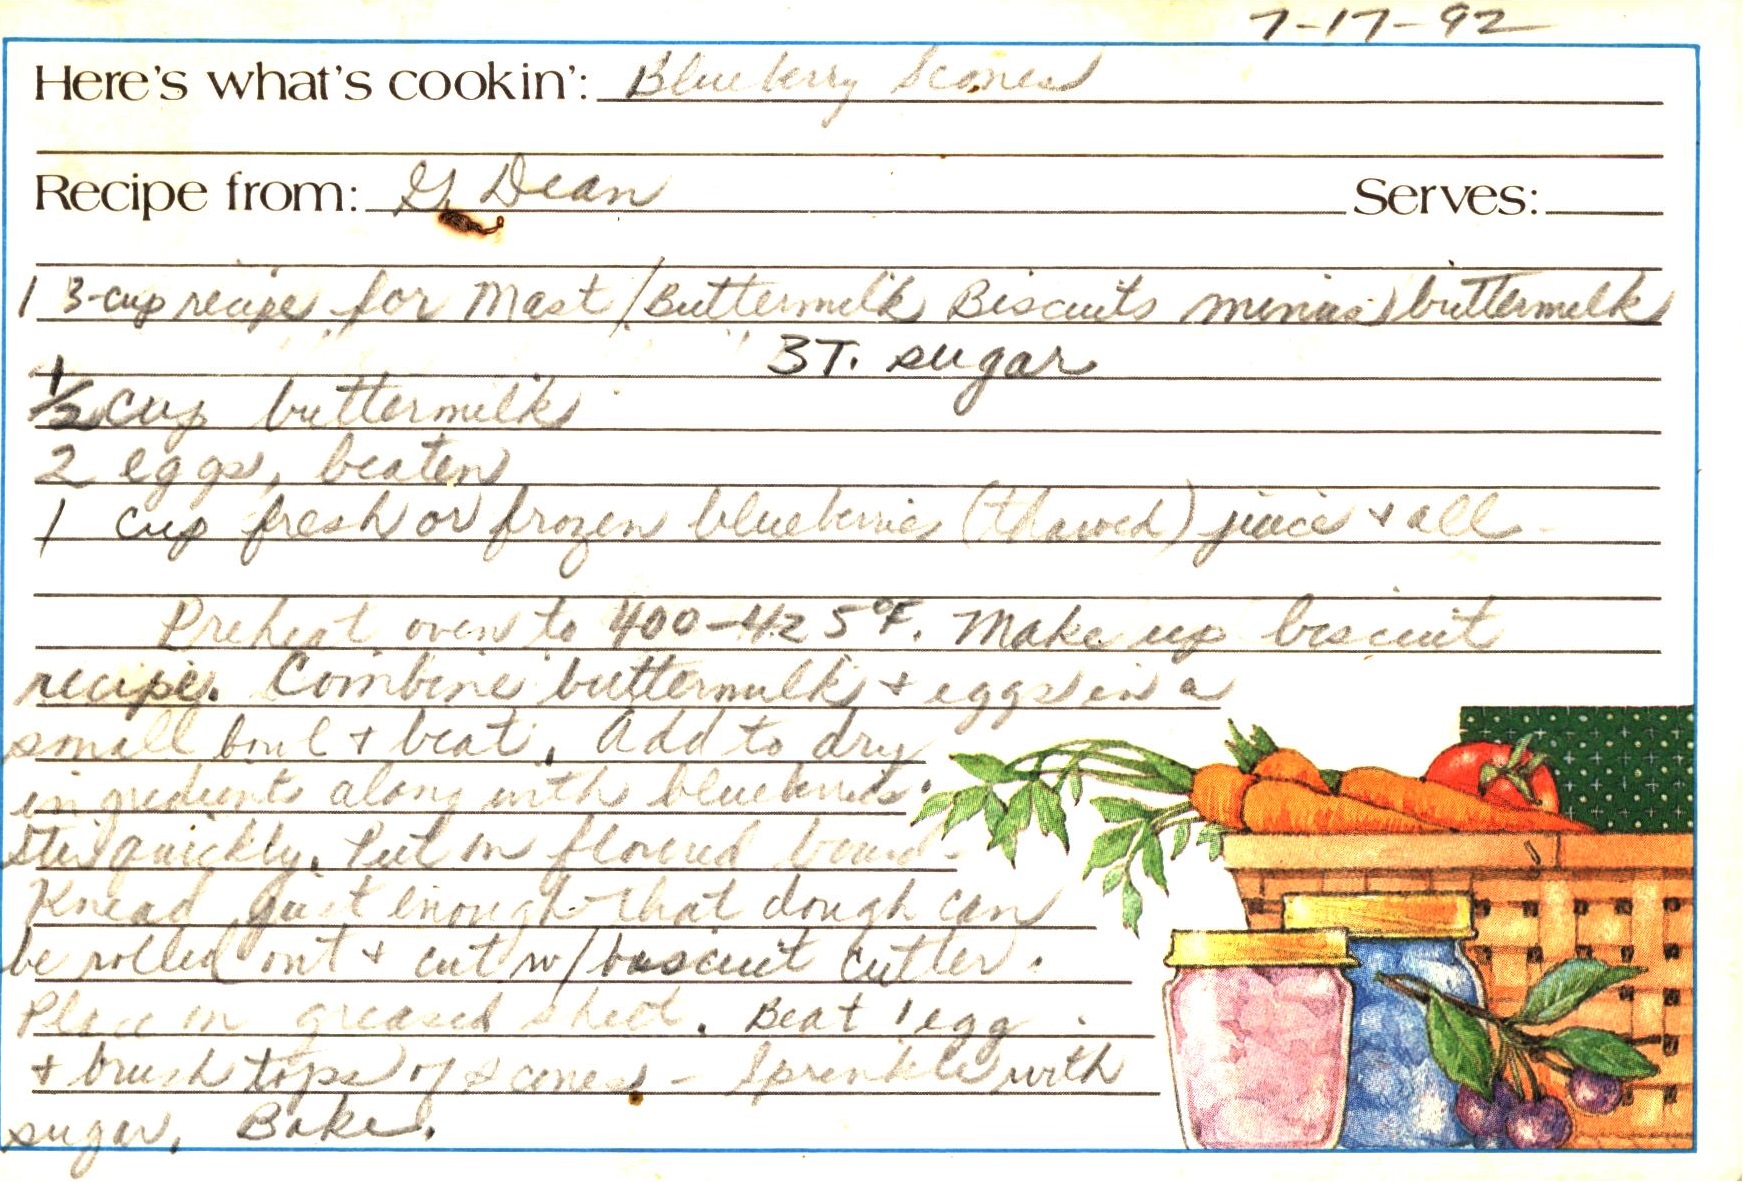 7-17-92
Here's what's cookin': Blueberry Scones
Recipe from: G. Dean Serves:
1 3-cup recipe for Mast/Buttermilk Biscuits minus buttermilk
3 T. sugar
1/2 cup buttermilk
2 eggs, beaten
1 cup fresh or frozen blueberries (thawed) juice + all
Preheat oven to 400-425°F. Make up biscuit
recipe. Combine buttermilk + eggs in a
small bowl + beat. Add to dry
ingredients along with blueberries.
Stir quickly. Put on floured board-
Knead just enough that dough can
be rolled out + cut w/ biscuit cutter.
Place on greased sheet. Beat 1 egg
+ brush tops of scones - Sprinkle with
sugar. Bake.